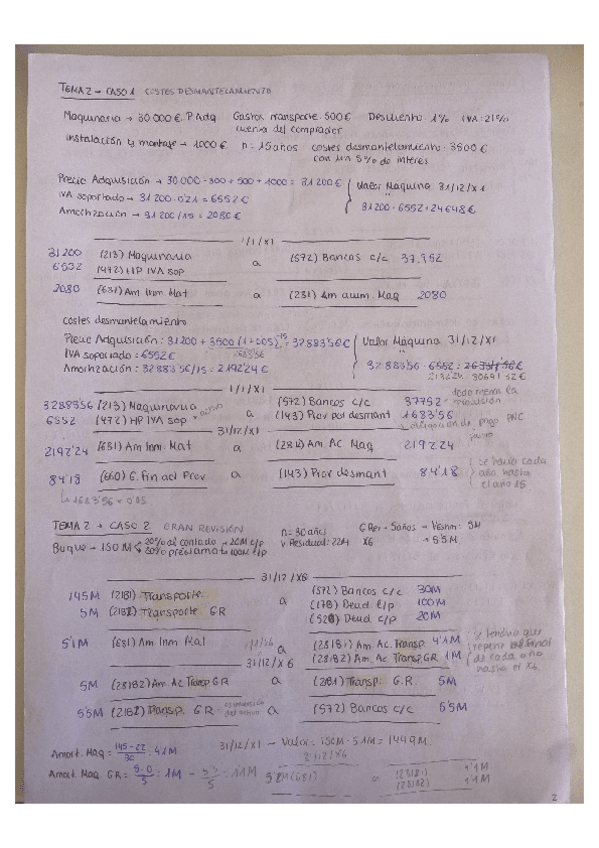 TEMA 2 → CASO 1 COSTES DESMANTELAMIENTO
Maquinaria → 30.000 € P Adq Gastos transporte: 500 € Descuento: 1% IVA: 21%
cuenta del comprador
instalación y montaje → 1000 € n = 15 años costes desmantelamiento: 3500 €
con un 5% de interés
Precio Adquisición → 30.000 - 300 + 500 + 1000 = 31200 €
Valor Maquina 31/12/X1
IVA soportado → 31200 · 0'21 = 6552 €
Amortización → 31200 / 15 = 2080 €
1/1/X1
31200 (213) Maquinaria
6552 (472) HP IVA sop
a (572) Bancos c/c 37.752
2080 (681) Am. Inm. Mat a (281) Am acum. Maq 2080
costes desmantelamiento
Precio Adquisición: 31200 + 3500 (1+0'05)^-15 = 32883'56 €
1683'56
Valor Máquina 31/12/X1
IVA soportado = 6552 €
Amortización: 32883'56/15 = 2192'24 €
2192'24 30691'32 €
1/1/X1
todo menos la provisión
3288356 (213) Maquinaria → activo
6552 (472) HP IVA sop
a (572) Bancos c/c 37752
(143) Prov por desmant 1683'56
obligación de pago PNC
pasivo
31/12/X1
2192'24 (681) Am Inm. Mat a (281) Am. Ac Maq 2192'24
84'18 (660) G. Fin act Prov a (143) Prov desmant 84'18
se haría cada año hasta el año 15
↳ 1683'56 × 0'05
TEMA 2 → CASO 2 GRAN REVISIÓN
n = 30 años G Rev → 5 años → Vestim: 5M
Buque → 150M
20% al contado → 30M c/p
80% préstamo → 100M l/p
V. Residual: 22M X6 → 5'5M
145M (2181) Transporte
5M (2182) Transporte GR
a (572) Bancos c/c 30M
100M
20M
5'1M (681) Am. Inm Mat a
(28181) Am Ac. Transp. 4'1M
(28182) Am. Ac Transp GR 1M
se tendría que repetir al final de cada año hasta el X6
31/12/X6
5M (28182) Am. Ac Transp GR a Transp. G.R. 5M
5'5M (2182) Transp. G R a (572) Bancos c/c 5'5M
Amort. Maq = 145-22/30 = 4'1M
31/12/X1 → Valor = 150M - 5'1M = 144'9M
Amort. Maq GR = 5-0/5 = 1M → 5'5/5 = 1'1M
(681) a (28181) 4'1M
(28182) 1'1M
2